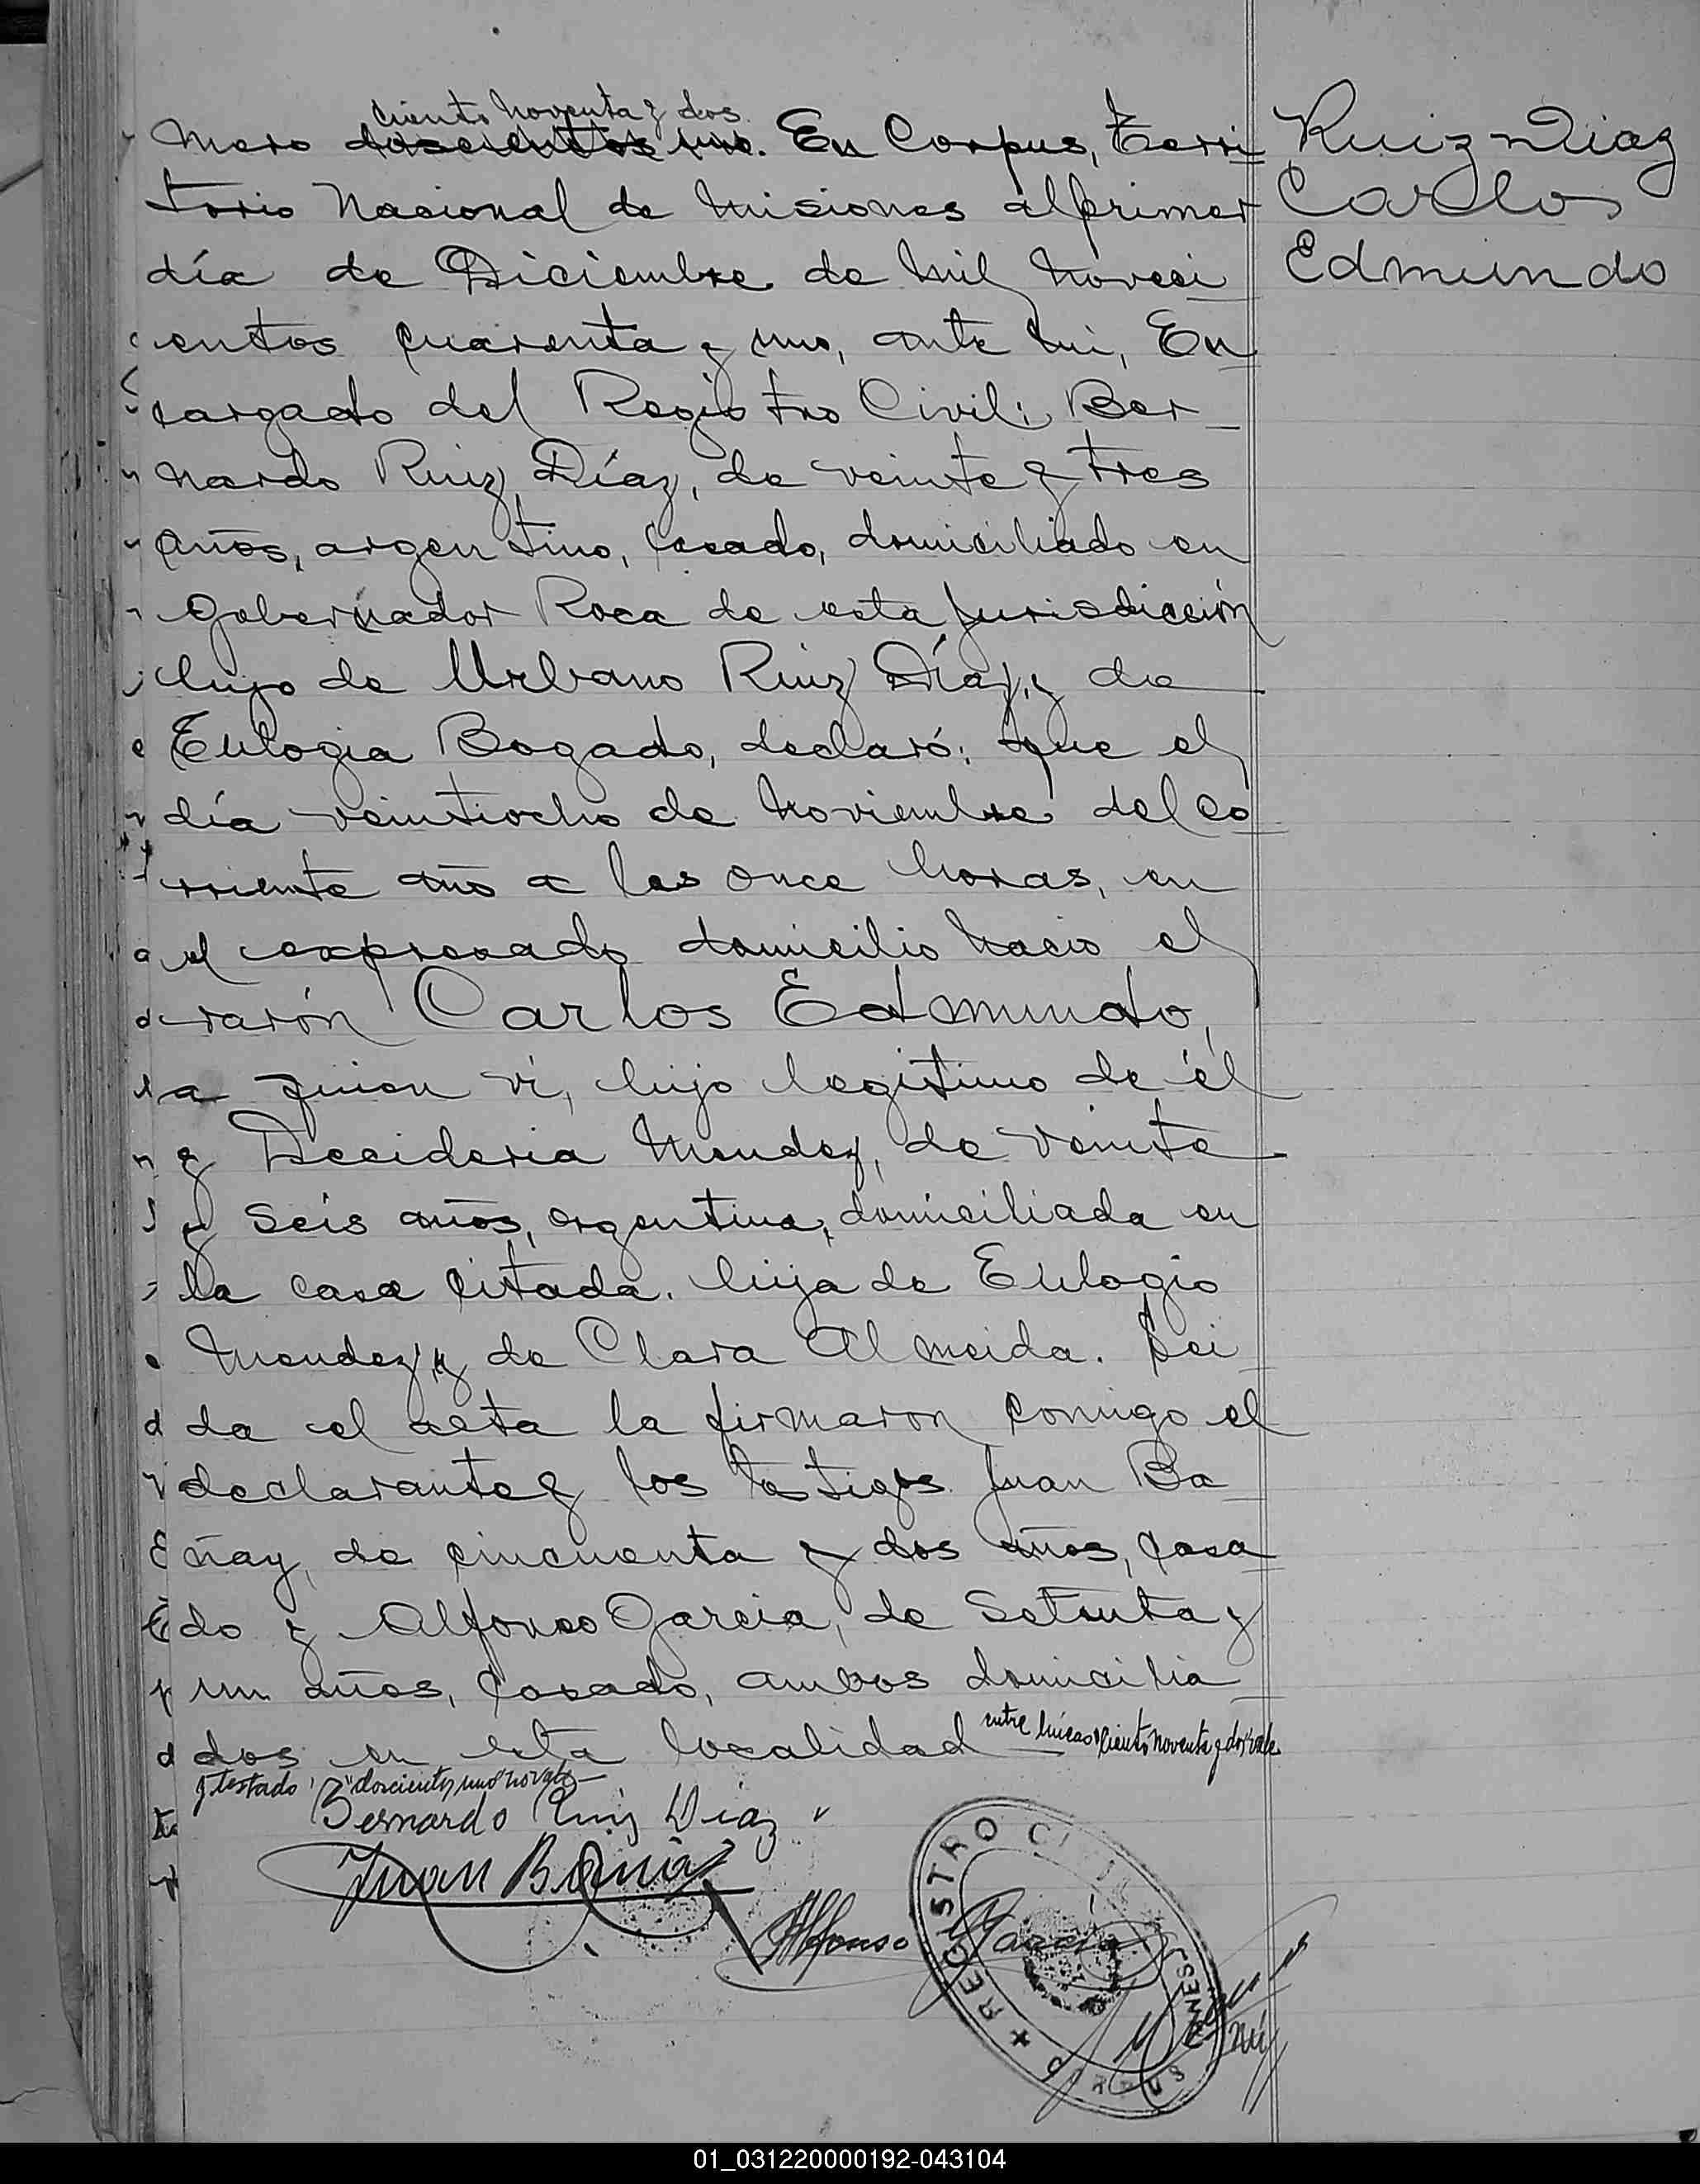 ciento noventa y dos
Mero doscientos uno. En Corpus, Terri
torio Nacional de Misiones al primer
día de Diciembre de mil noveci
entos cuarenta y uno, ante mi, En
cargado del Registro Civil: Ber_
nardo Ruiz Díaz, de veinte y tres
años, argentino, casado, domiciliado en
Gobernador Roca de esta jurisdicción
hijo de Urbano Ruiz Díaz, y de
Eulogia Bogado, declaró: que el
día veintiocho de Noviembre del co
rriente año a las once horas, en
el expresado domicilio nació el
varón Carlos Edmundo,
a quien vi, hijo legitimo de él
y Decideria Mendez, de veinte
y seis años, argentina, domiciliada en
la casa citada. hija de Eulogio
Mendez, y de Clara Almeida. Lei
da el acta la firmaron conmigo el
declarante y los testigos Juan Ba
ñay, de cincuenta y dos años, casa
do y Alfonso Garcia, de setenta y
un años, casado, ambos domicilia
dos en esta localidad entre lineas "ciento noventa y dos" vale
y testado "doscientos uno" no vale
Bernardo Ruiz Diaz
Juan Bañay
Alfonso Garcia
REGISTRO CIVIL
Ruiz Diaz
Carlos
Edmundo
01_031220000192-043104